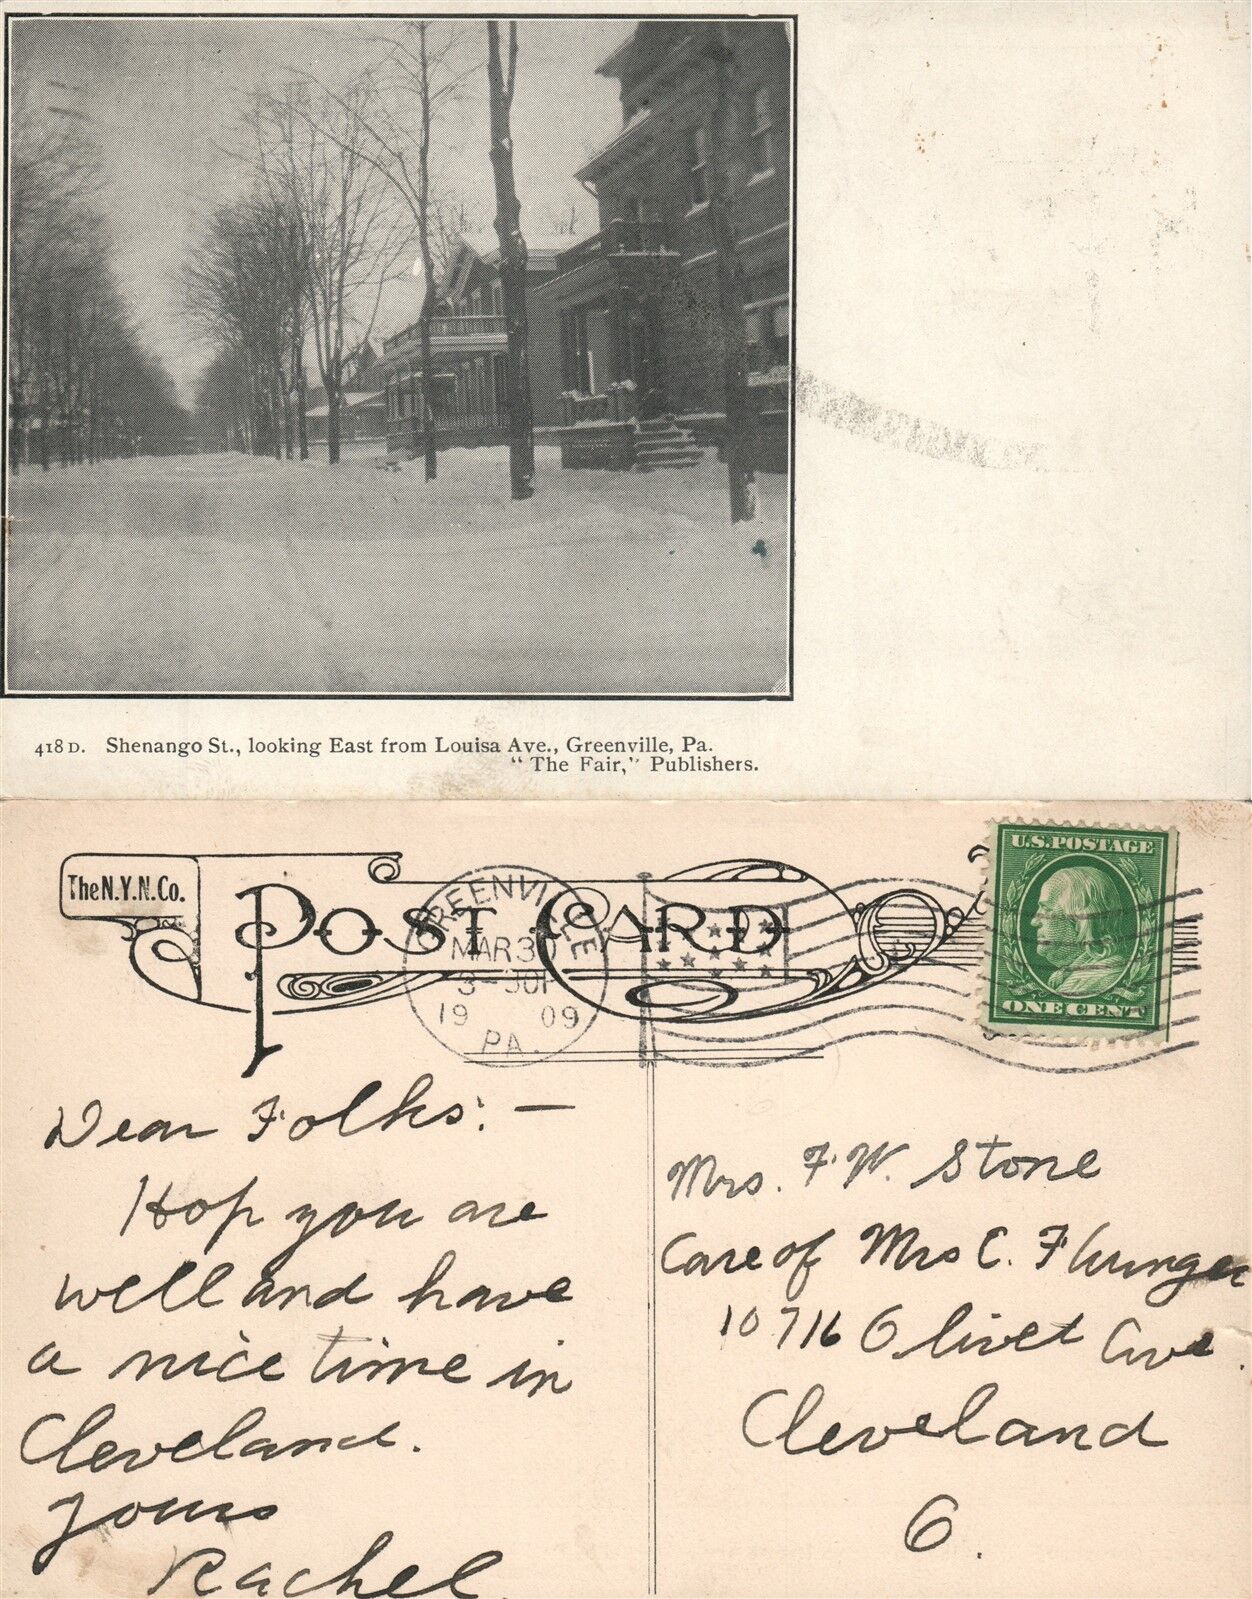 418 D. Shenango St., looking East from Louisa Ave., Greenville, Pa.
"The Fair," Publishers.
The N.Y.N. Co.
POST CARD
GREENVILLE
MAR 30
3-30P
19 09
PA.
U.S. POSTAGE
ONE CENT
Dear Folks: —
Hop you are
well and have
a nice time in
Cleveland.
yours
Rachel.
Mrs. F. W. Stone
Care of Mrs C.
10716 Olivet Ave.
Cleveland
O.